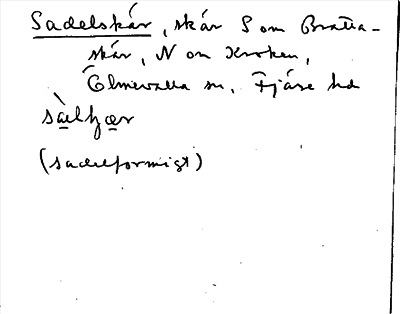 Sadelskär, skär S om Bratta-
skär, N om Kroken,
Ölmevalla sn, Fjäre hd
sàelhær
(sadelformigt)